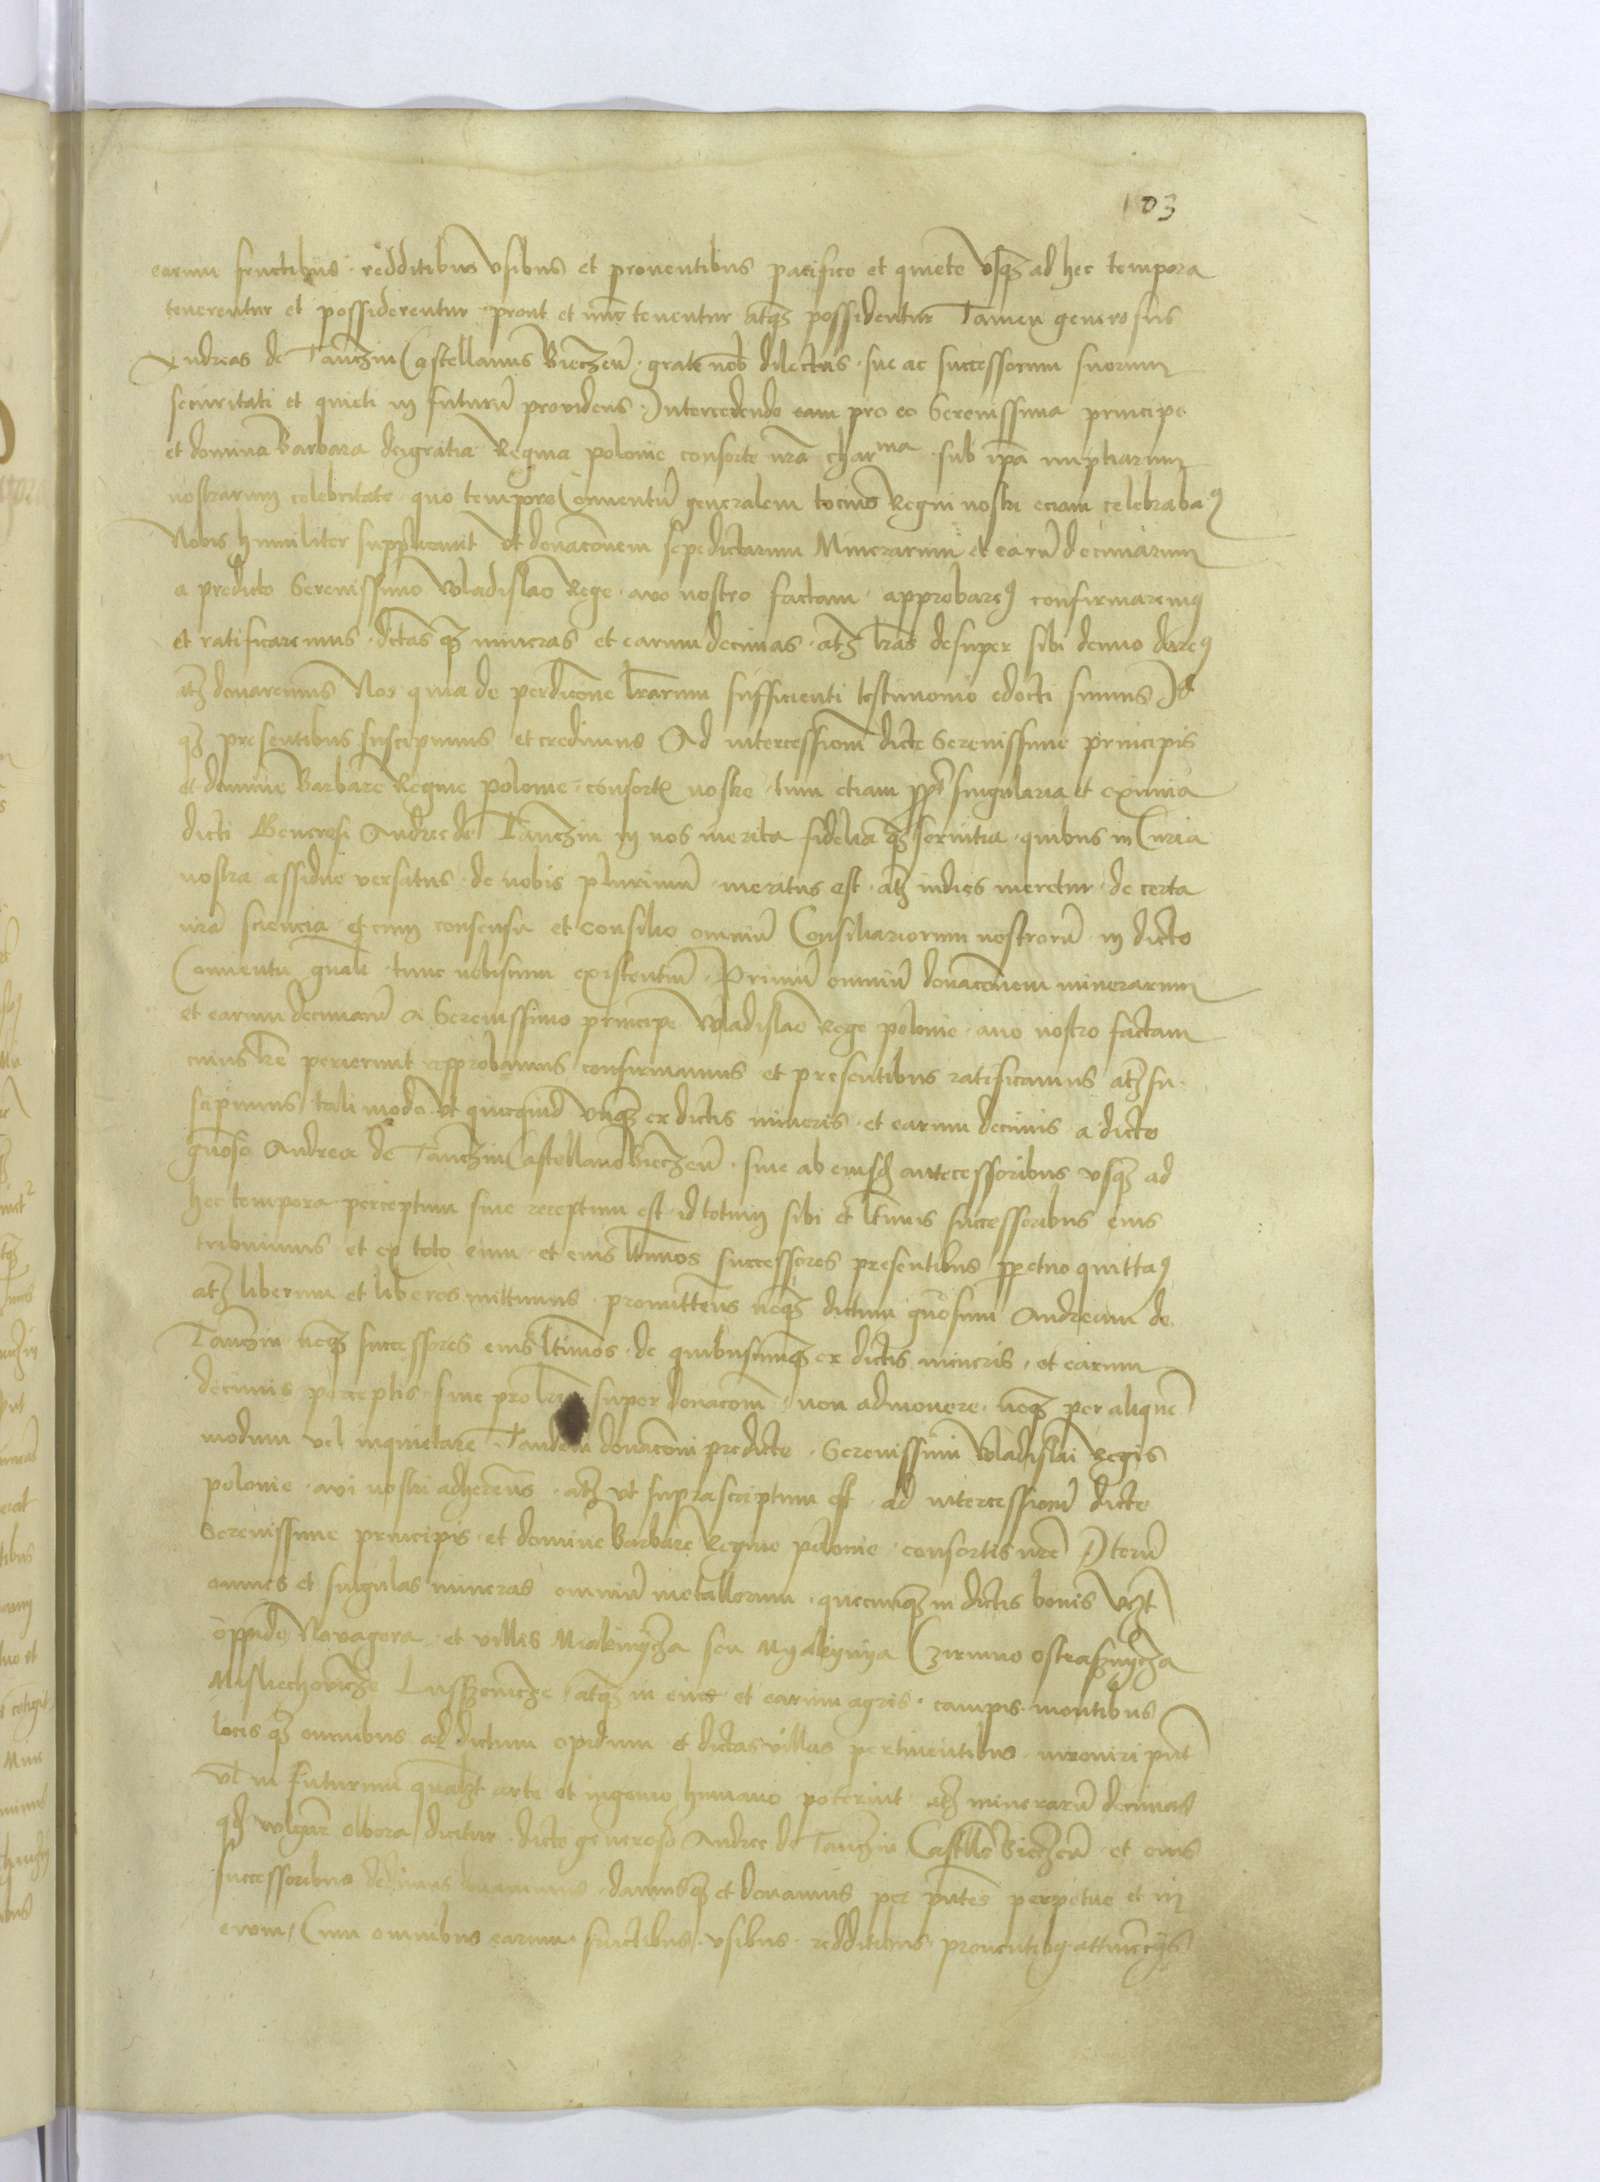 103
earum fructibus redditibus vsibus et prouentibus pacifice et quiete vsqꝫ ad hec tempora
tenerentur et possiderentur prout et nūc tenentur atqꝫ possidentur Tamen generosus
Andreas de Tanczin Castellanus Bieczeñ grate nob dilectus sue ac successorum suorum
securitati et quieti in futurū providens Intercedendo eam pro eo Serenissima principe
et domina Barbara dei gratia Regina polonie consorte nrā charma sub ipā nuptiarum
nostrarum celebritate quo tempore Conuentū generalem tocius Regni nostri eciam celebrabaꝰ
Nobis humiliter supplicauit vt donacōnem sepedictarum Minerarum et earū decimarum
a predicto Serenissimo Wladislao Rege auo nostro factam approbareꝰ confirmaremꝰ
et ratificaremus dictas qꝫ mineras et earum decimas atqꝫ lrās desuper sibi denuo dareꝰ
atqꝫ donaremus Nos quia de perdicōne lrārum sufficienti testimonio edocti sumus Id
qꝫ presentibus suscipimus et credimus Ad intercessionē dicte Serenissime principis
et domine Barbare Regine polonie consortꝭ nostre tum etiam ppt singularia et eximia
dicti Generosi Andree de Tanczin in nos merita fidelia qꝫ seruitia quibus in Curia
nostra assidue versatus de nobis plurimū meritus est atqꝫ indies meretur de certa
nrā sciencia et cum consensu et consilio omniū Consiliariorum nostrorū in dicto
Conuentu gnāli tunc nobiscum existentiū Primū omniū donacōnem minerarum
et earum decimarū a Serenissimo principe Wladislao Rege polonie auo nostro factam
cuius lrē perierunt approbamus confirmamus et presentibus ratificamus atqꝫ su
scipimus tali modo vt quicquid vnqꝫ ex dictis mineris et earum decimis a dicto
gnōso Andrea de Tanczin Castellano Bieczeñ siue ab eiusdꝫ antecessoribus vsqꝫ ad
hec tempora perceptum siue receptum est id totum sibi et ltīmis successoribus eius
tribuimus et ex toto eum et eius ltīmos successores presentibus ppetuo quittaꝰ
atqꝫ liberum et liberos mittimus promittentes neqꝫ dictum gnōsum Andream de
Tanczin neqꝫ successores eius ltīmos de quibuscunqꝫ ex dictis mineris et earum
decimis perceptis siue pro lris super donacōne non admonere neqꝫ per aliquē
modum vel inquietare Tandem donacōni predicte Serenissimi Wladislai Regis
polonie aui nostri adherentes atqꝫ vt suprascriptum est ad intercessionē dicte
Serenissime principis et domine Barbare Regine polonie consortis nrē Iterū
omnes et singulas mineras omniū metallorum quecunqꝫ in dictis bonis vcꝫt
oppido Novagora et villis Miakinÿcza seu Myakynya Czirnno Ostrasznycza
Mislechowicze Lusszowicze atqꝫ in eius et earum agris campis montibus
locis qꝫ omnibus ad dictum opidum et dictas villas pertinentibus inveniri pñt
vl in futurum qualꝫt arte et ingenio humano poterint atqꝫ minerarū decimas
qd vulgari olbora dicitur dicto generoso Andree de Tanczin Castello Bieczeñ et eius
successoribus dedimus donauimus damusqꝫ et donamus per pñtes perpetue et in
evum Cum omnibus earum fructibus vsibus redditibus prouentibꝰ attinēcijs